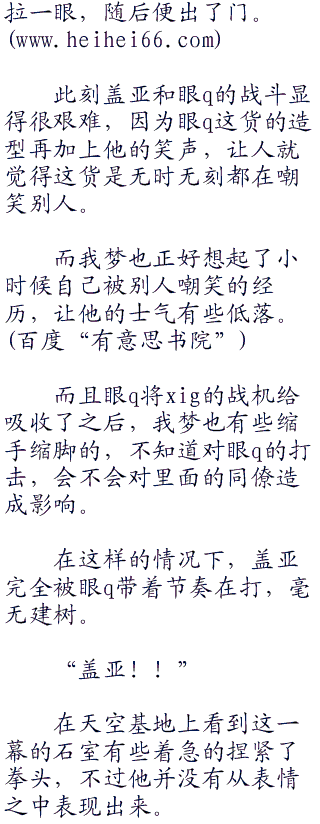 拉一眼，随后便出了门。
(www.heihei66.com)
此刻盖亚和眼q的战斗显
得很艰难，因为眼q这货的造
型再加上他的笑声，让人就
觉得这货是无时无刻都在嘲
笑别人。
而我梦也正好想起了小
时候自己被别人嘲笑的经
历，让他的士气有些低落。
(百度“有意思书院”)
而且眼q将xig的战机给
吸收了之后，我梦也有些缩
手缩脚的，不知道对眼q的打
击，会不会对里面的同僚造
成影响。
在这样的情况下，盖亚
完全被眼q带着节奏在打，毫
无建树。
“盖亚！！”
在天空基地上看到这一
幕的石室有些着急的捏紧了
拳头，不过他并没有从表情
之中表现出来。